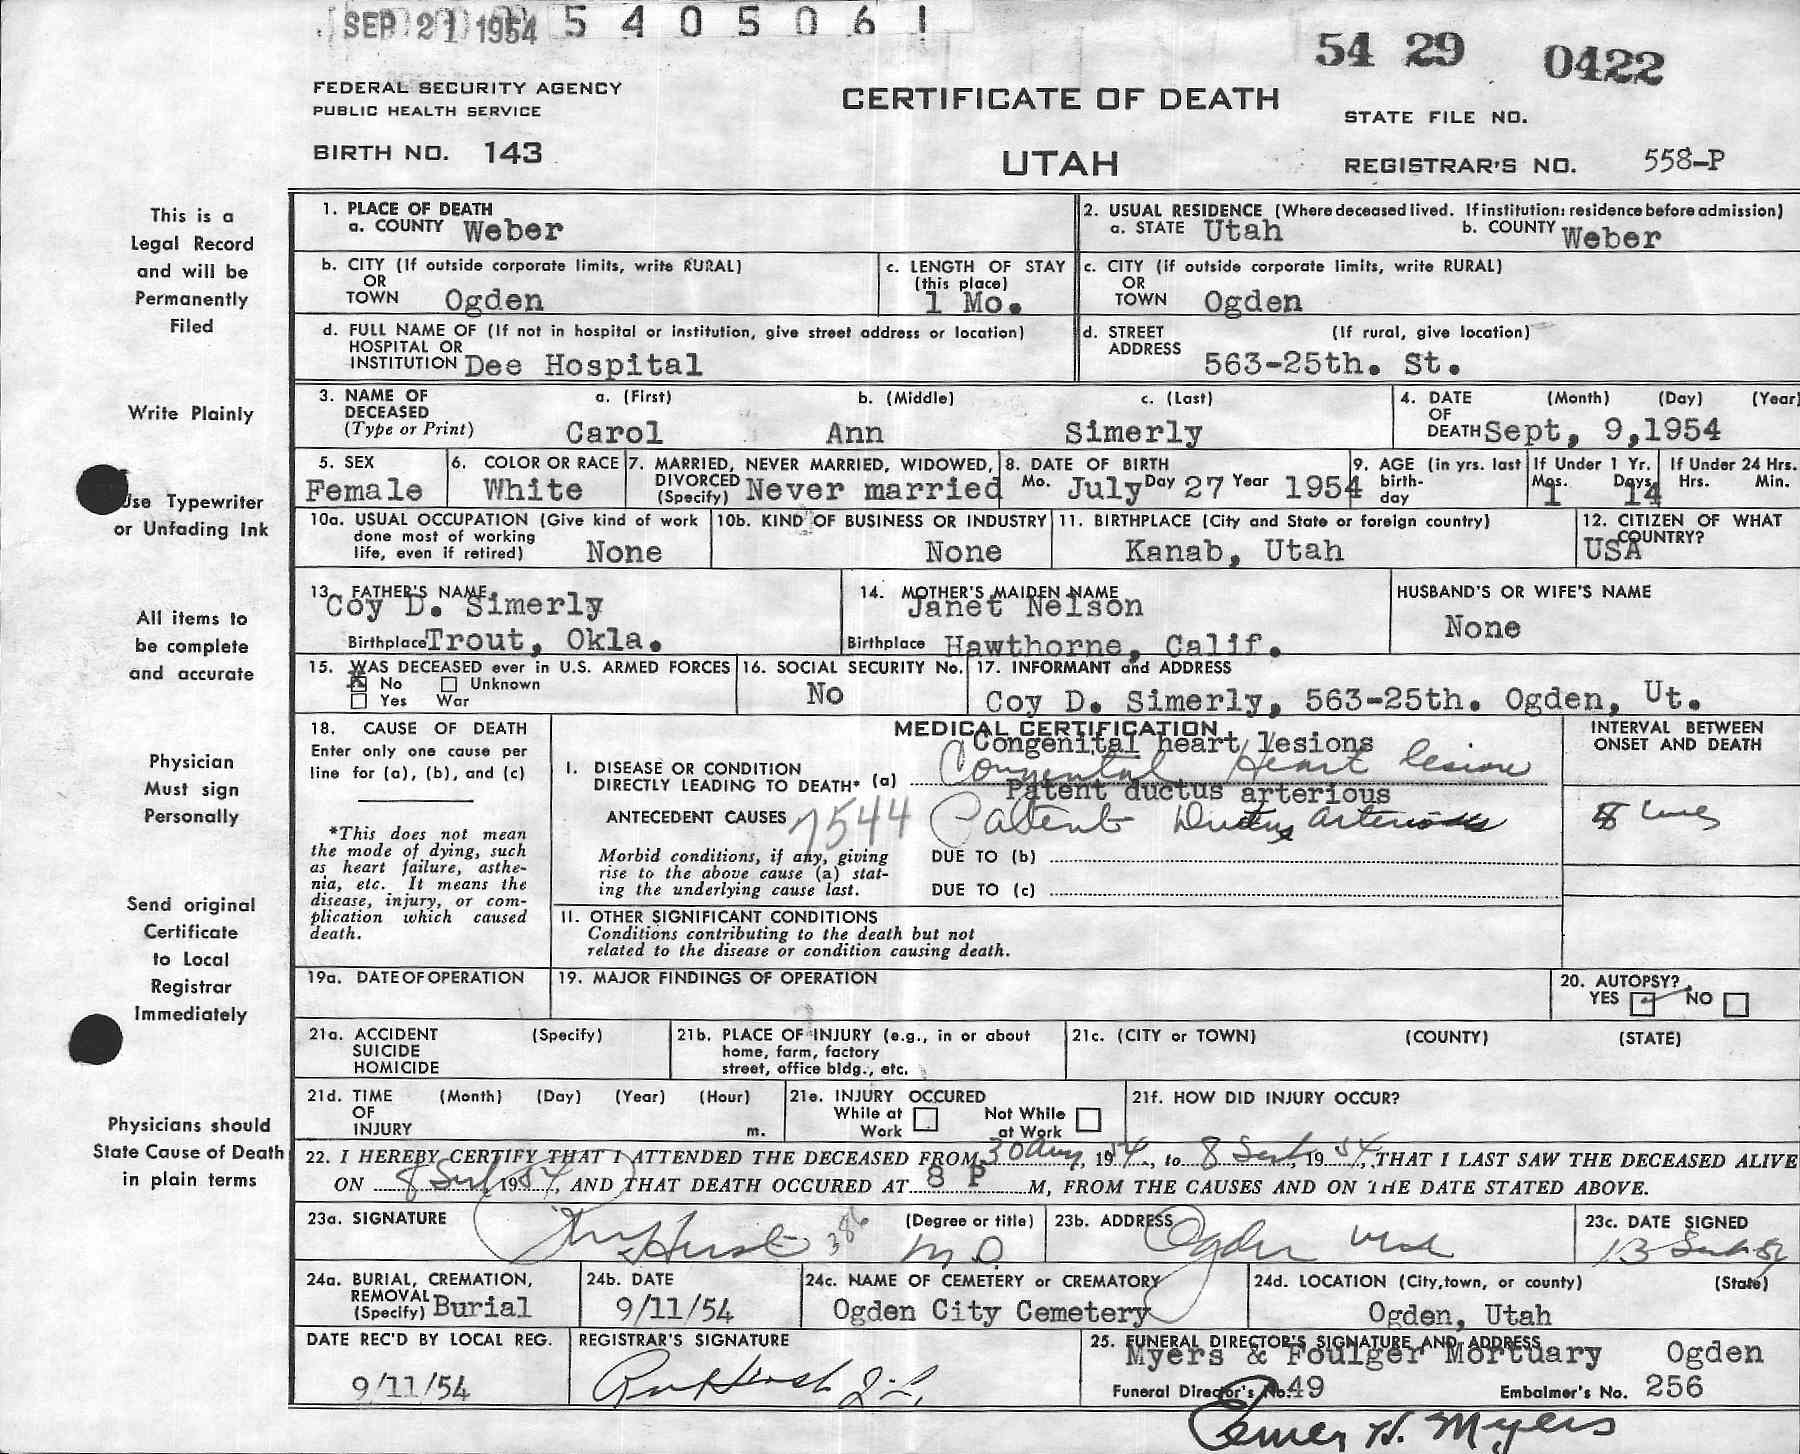 SEP 21 1954 5 4 0 5 0 6 1
54 29 0422
FEDERAL SECURITY AGENCY
PUBLIC HEALTH SERVICE
CERTIFICATE OF DEATH
STATE FILE NO.
BIRTH NO. 143
UTAH
REGISTRAR'S NO. 558-P
This is a
Legal Record
and will be
Permanently
Filed
Write Plainly
Use Typewriter
or Unfading Ink
All items to
be complete
and accurate
Physician
Must sign
Personally
Send original
Certificate
to Local
Registrar
Immediately
Physicians should
State Cause of Death
in plain terms
1. PLACE OF DEATH
a. COUNTY Weber
2. USUAL RESIDENCE (Where deceased lived. If institution: residence before admission)
a. STATE Utah b. COUNTY Weber
b. CITY (If outside corporate limits, write RURAL)
OR
TOWN Ogden
c. LENGTH OF STAY
(this place)
1 Mo.
c. CITY (if outside corporate limits, write RURAL)
OR
TOWN Ogden
d. FULL NAME OF (If not in hospital or institution, give street address or location)
HOSPITAL OR
INSTITUTION Dee Hospital
d. STREET (If rural, give location)
ADDRESS 563-25th. St.
3. NAME OF a. (First) b. (Middle) c. (Last)
DECEASED
(Type or Print) Carol Ann Simerly
4. DATE (Month) (Day) (Year)
OF
DEATH Sept, 9,1954
5. SEX
Female
6. COLOR OR RACE
White
7. MARRIED, NEVER MARRIED, WIDOWED,
DIVORCED
(Specify) Never married
8. DATE OF BIRTH
Mo. July Day 27 Year 1954
9. AGE (in yrs. last
birth-
day
If Under 1 Yr.
Mos. Days
1 14
If Under 24 Hrs.
Hrs. Min.
10a. USUAL OCCUPATION (Give kind of work
done most of working
life, even if retired) None
10b. KIND OF BUSINESS OR INDUSTRY
None
11. BIRTHPLACE (City and State or foreign country)
Kanab, Utah
12. CITIZEN OF WHAT
COUNTRY?
USA
13. FATHER'S NAME
Coy D. Simerly
Birthplace Trout, Okla.
14. MOTHER'S MAIDEN NAME
Janet Nelson
Birthplace Hawthorne, Calif.
HUSBAND'S OR WIFE'S NAME
None
15. WAS DECEASED ever in U.S. ARMED FORCES
No Unknown
Yes War
16. SOCIAL SECURITY No.
No
17. INFORMANT and ADDRESS
Coy D. Simerly, 563-25th. Ogden, Ut.
18. CAUSE OF DEATH
Enter only one cause per
line for (a), (b), and (c)
*This does not mean
the mode of dying, such
as heart failure, asthe-
nia, etc. It means the
disease, injury, or com-
plication which caused
death.
MEDICAL CERTIFICATION
Congenital heart lesions
I. DISEASE OR CONDITION
DIRECTLY LEADING TO DEATH* (a) Congenital Heart lesions
Patent ductus arterious
ANTECEDENT CAUSES 7544 Patent Ductus arteriosis
Morbid conditions, if any, giving
rise to the above cause (a) stat-
ing the underlying cause last.
DUE TO (b)
DUE TO (c)
INTERVAL BETWEEN
ONSET AND DEATH
II. OTHER SIGNIFICANT CONDITIONS
Conditions contributing to the death but not
related to the disease or condition causing death.
19a. DATE OF OPERATION
19. MAJOR FINDINGS OF OPERATION
20. AUTOPSY?
YES NO
21a. ACCIDENT (Specify)
SUICIDE
HOMICIDE
21b. PLACE OF INJURY (e.g., in or about
home, farm, factory
street, office bldg., etc.
21c. (CITY or TOWN) (COUNTY) (STATE)
21d. TIME (Month) (Day) (Year) (Hour)
OF
INJURY m.
21e. INJURY OCCURED
While at Not While
Work at Work
21f. HOW DID INJURY OCCUR?
22. I HEREBY CERTIFY THAT I ATTENDED THE DECEASED FROM 30 Aug, 1954, to 8 Sept, 1954, THAT I LAST SAW THE DECEASED ALIVE
ON 8 Sept, 1954, AND THAT DEATH OCCURED AT 8 P M, FROM THE CAUSES AND ON THE DATE STATED ABOVE.
23a. SIGNATURE (Degree or title)
M.D.
23b. ADDRESS
Ogden Utah
23c. DATE SIGNED
13 Sept 54
24a. BURIAL, CREMATION,
REMOVAL
(Specify) Burial
24b. DATE
9/11/54
24c. NAME OF CEMETERY or CREMATORY
Ogden City Cemetery
24d. LOCATION (City,town, or county) (State)
Ogden, Utah
DATE REC'D BY LOCAL REG.
9/11/54
REGISTRAR'S SIGNATURE
25. FUNERAL DIRECTOR'S SIGNATURE AND ADDRESS
Myers & Foulger Mortuary Ogden
Funeral Director's No. 49 Embalmer's No. 256
Elmer H. Myers